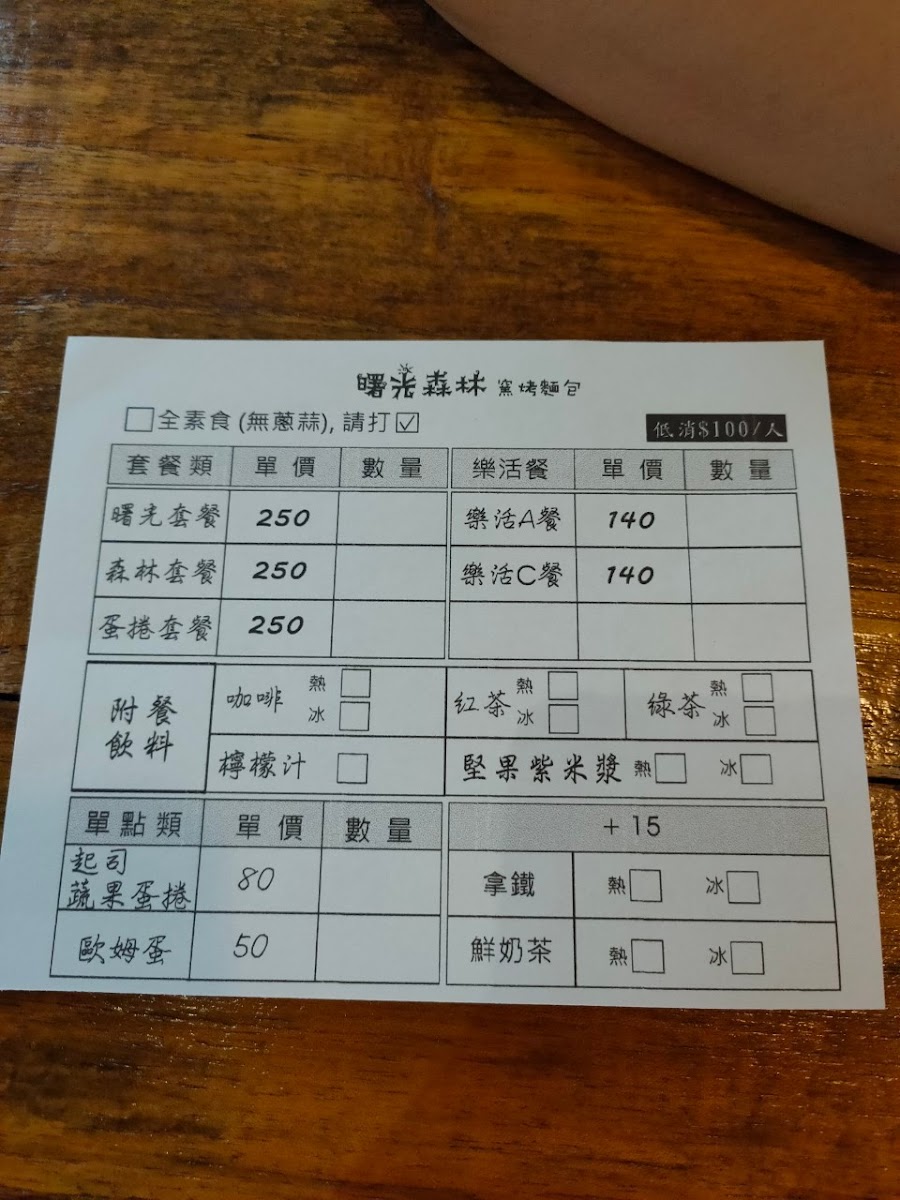 曙光森林 窯烤麵包
□全素食(無蔥蒜),請打☑
低消$100/人
套餐類 單價 數量 樂活餐 單價 數量
曙光套餐 250 樂活A餐 140
森林套餐 250 樂活C餐 140
蛋捲套餐 250
附餐飲料
咖啡 熱□ 冰□ 紅茶 熱□ 冰□ 綠茶 熱□ 冰□
檸檬汁 □ 堅果紫米漿 熱□ 冰□
單點類 單價 數量 +15
起司
蔬果蛋捲 80 拿鐵 熱□ 冰□
歐姆蛋 50 鮮奶茶 熱□ 冰□